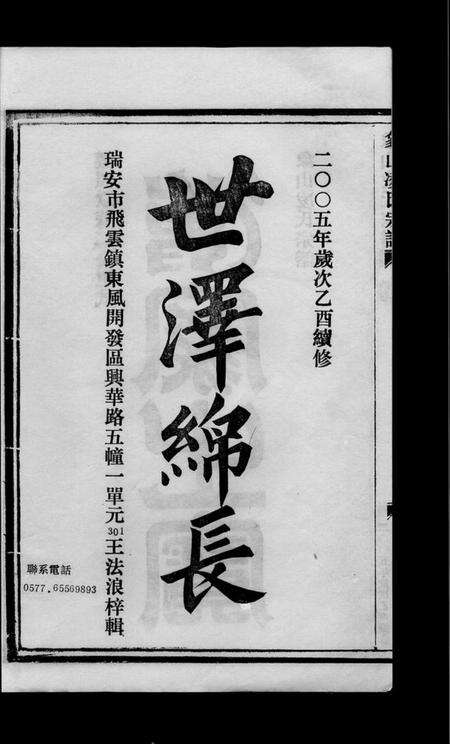 二〇〇五年歲次乙酉續修
世澤綿長
瑞安市飛雲鎮東風開發區興華路五幢一單元301王法浪梓輯
聯系電話
0577.65569893